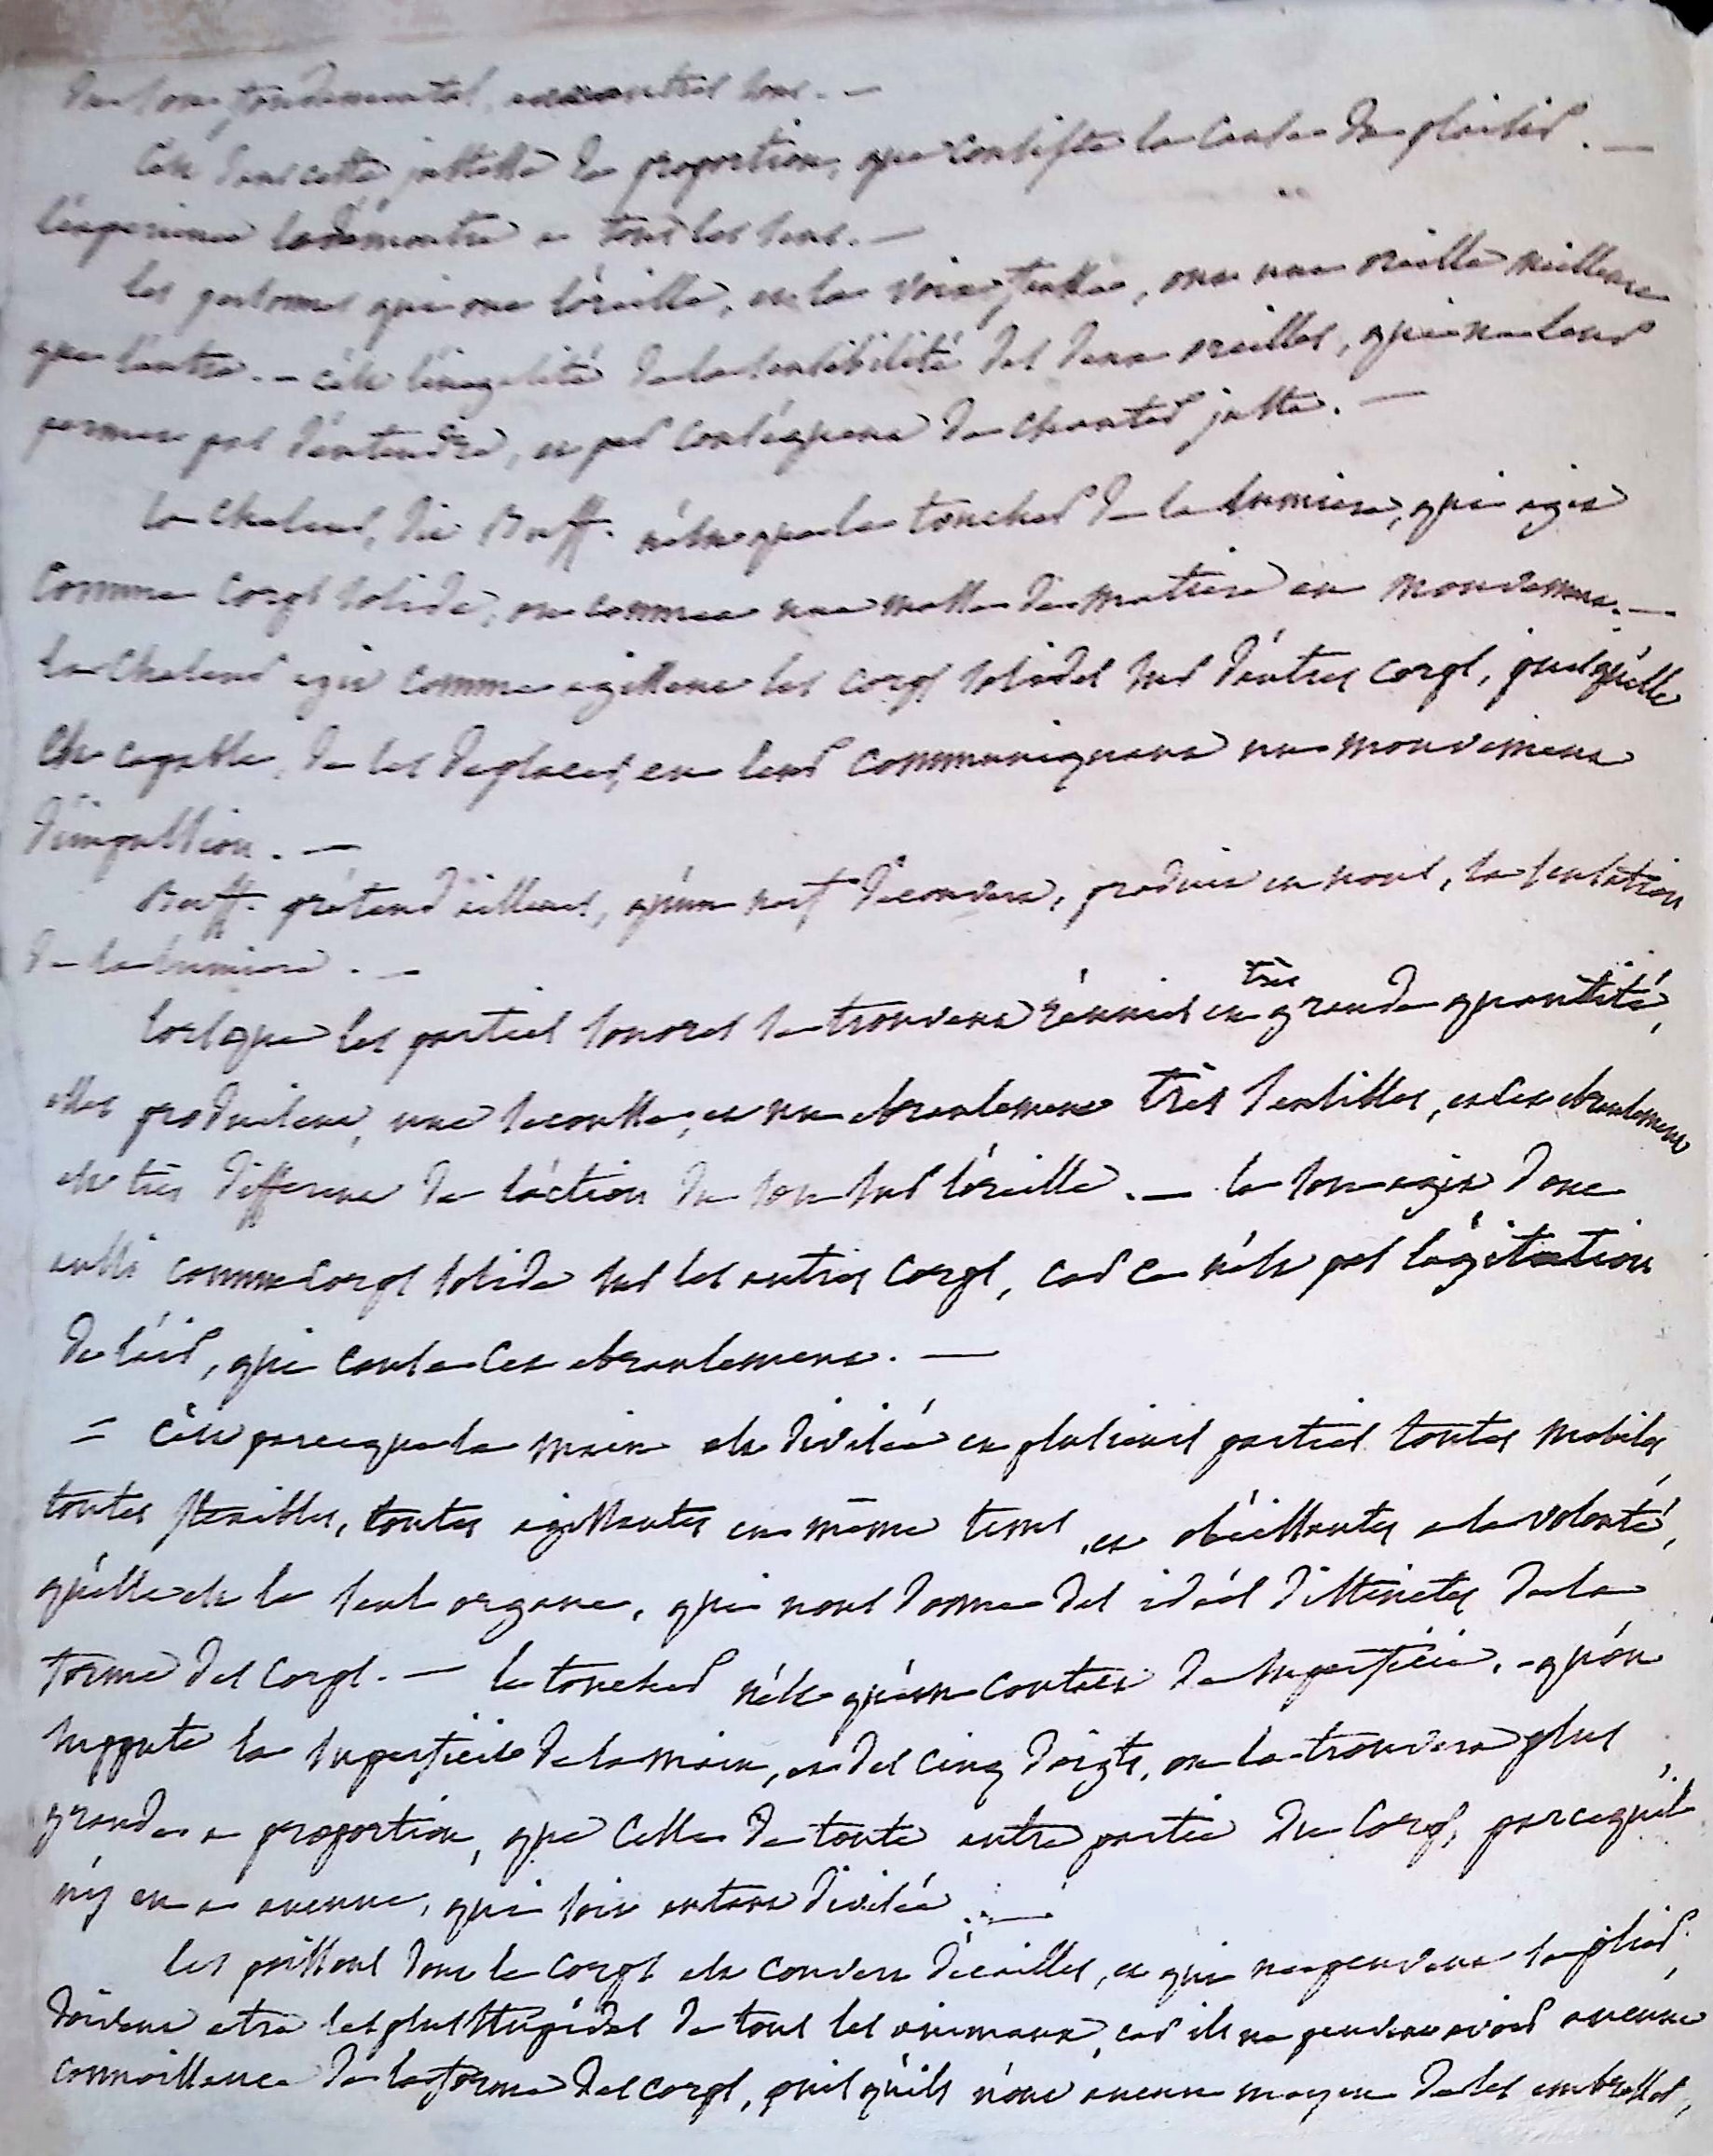 du son fondamental, aux autres sons. —
C'est dans cette justesse de proportion, que consiste la cause du plaisir. —
l'expérience le démontre a tous les sens. —
les personnes qui ont l'oreille, et la voix fausse, ont une oreille meilleure
que l'autre. — c'est l'inégalité de la sensibilité des deux oreilles, qui ne leur
permet pas d'entendre, et par conséquent de chanter juste. —
la chaleur, dit Buff. n'est que le toucher de la lumiere, qui agit
comme corps solide, ou comme une masse de matiere en mouvement. —
la chaleur agit comme agissent les corps solides sur d'autres corps, puisqu'elle
est capable, de les deplacer, en leur communiquant un mouvement
d'impulsion. —
Buff. prétend ailleurs, qu'un nerf découvert, produit en nous, la sensation
de la lumiere. —
lorsque les parties sonores se trouvent réunies en très grande quantité,
elles produisent, une secousse, et un ebranlement très sensibles, et cet ebranlement
est très different de l'action du son sur l'oreille. — le son agit donc
aussi comme corps solide sur les autres corps, car ce n'est pas l'agitation
de l'air, qui cause cet ebranlement. —
= c'est parceque la main est divisée en plusieurs parties toutes mobiles,
toutes flexibles, toutes agissantes en même tems, et obéissantes a la volonté,
qu'elle est le seul organe, qui nous donne des idées distinctes de la
forme des corps. — le toucher n'est qu'un contact de superficie. — qu'on
suppute la superficie de la main, et des cinq doigts, on la trouvera plus
grande a proportion, que celle de toute autre partie du corps, parcequ'il
n'y en a aucune, qui soit autant divisée. —
les poissons dont le corps est couvert d'écailles, et qui ne peuvent se plier,
doivent etre les plus stupides de tous les animaux, car ils ne peuvent avoir aucune
connoissance de la forme des corps, puisqu'ils n'ont aucun moyen de les embrasser,